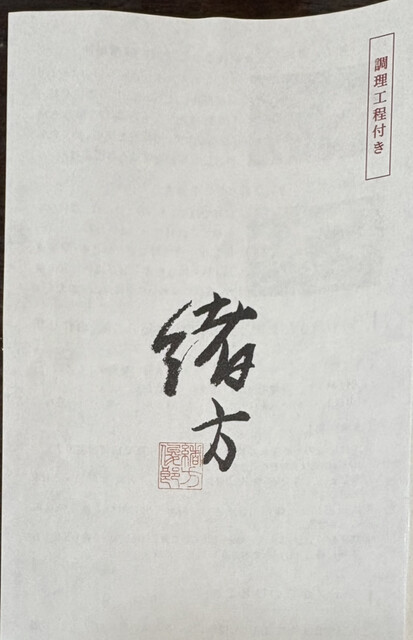 調理工程付き
緒方
緒方
俊郎